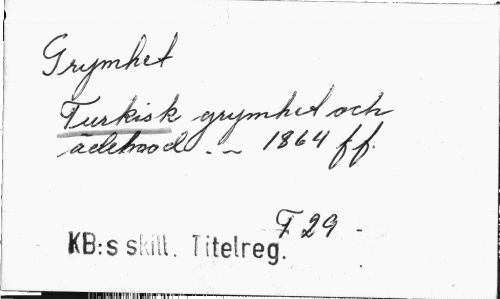 Grymhet
Turkisk grymhet och
ädelmod . - 1864 ff.
F 29 -
KB:s skill. Titelreg.